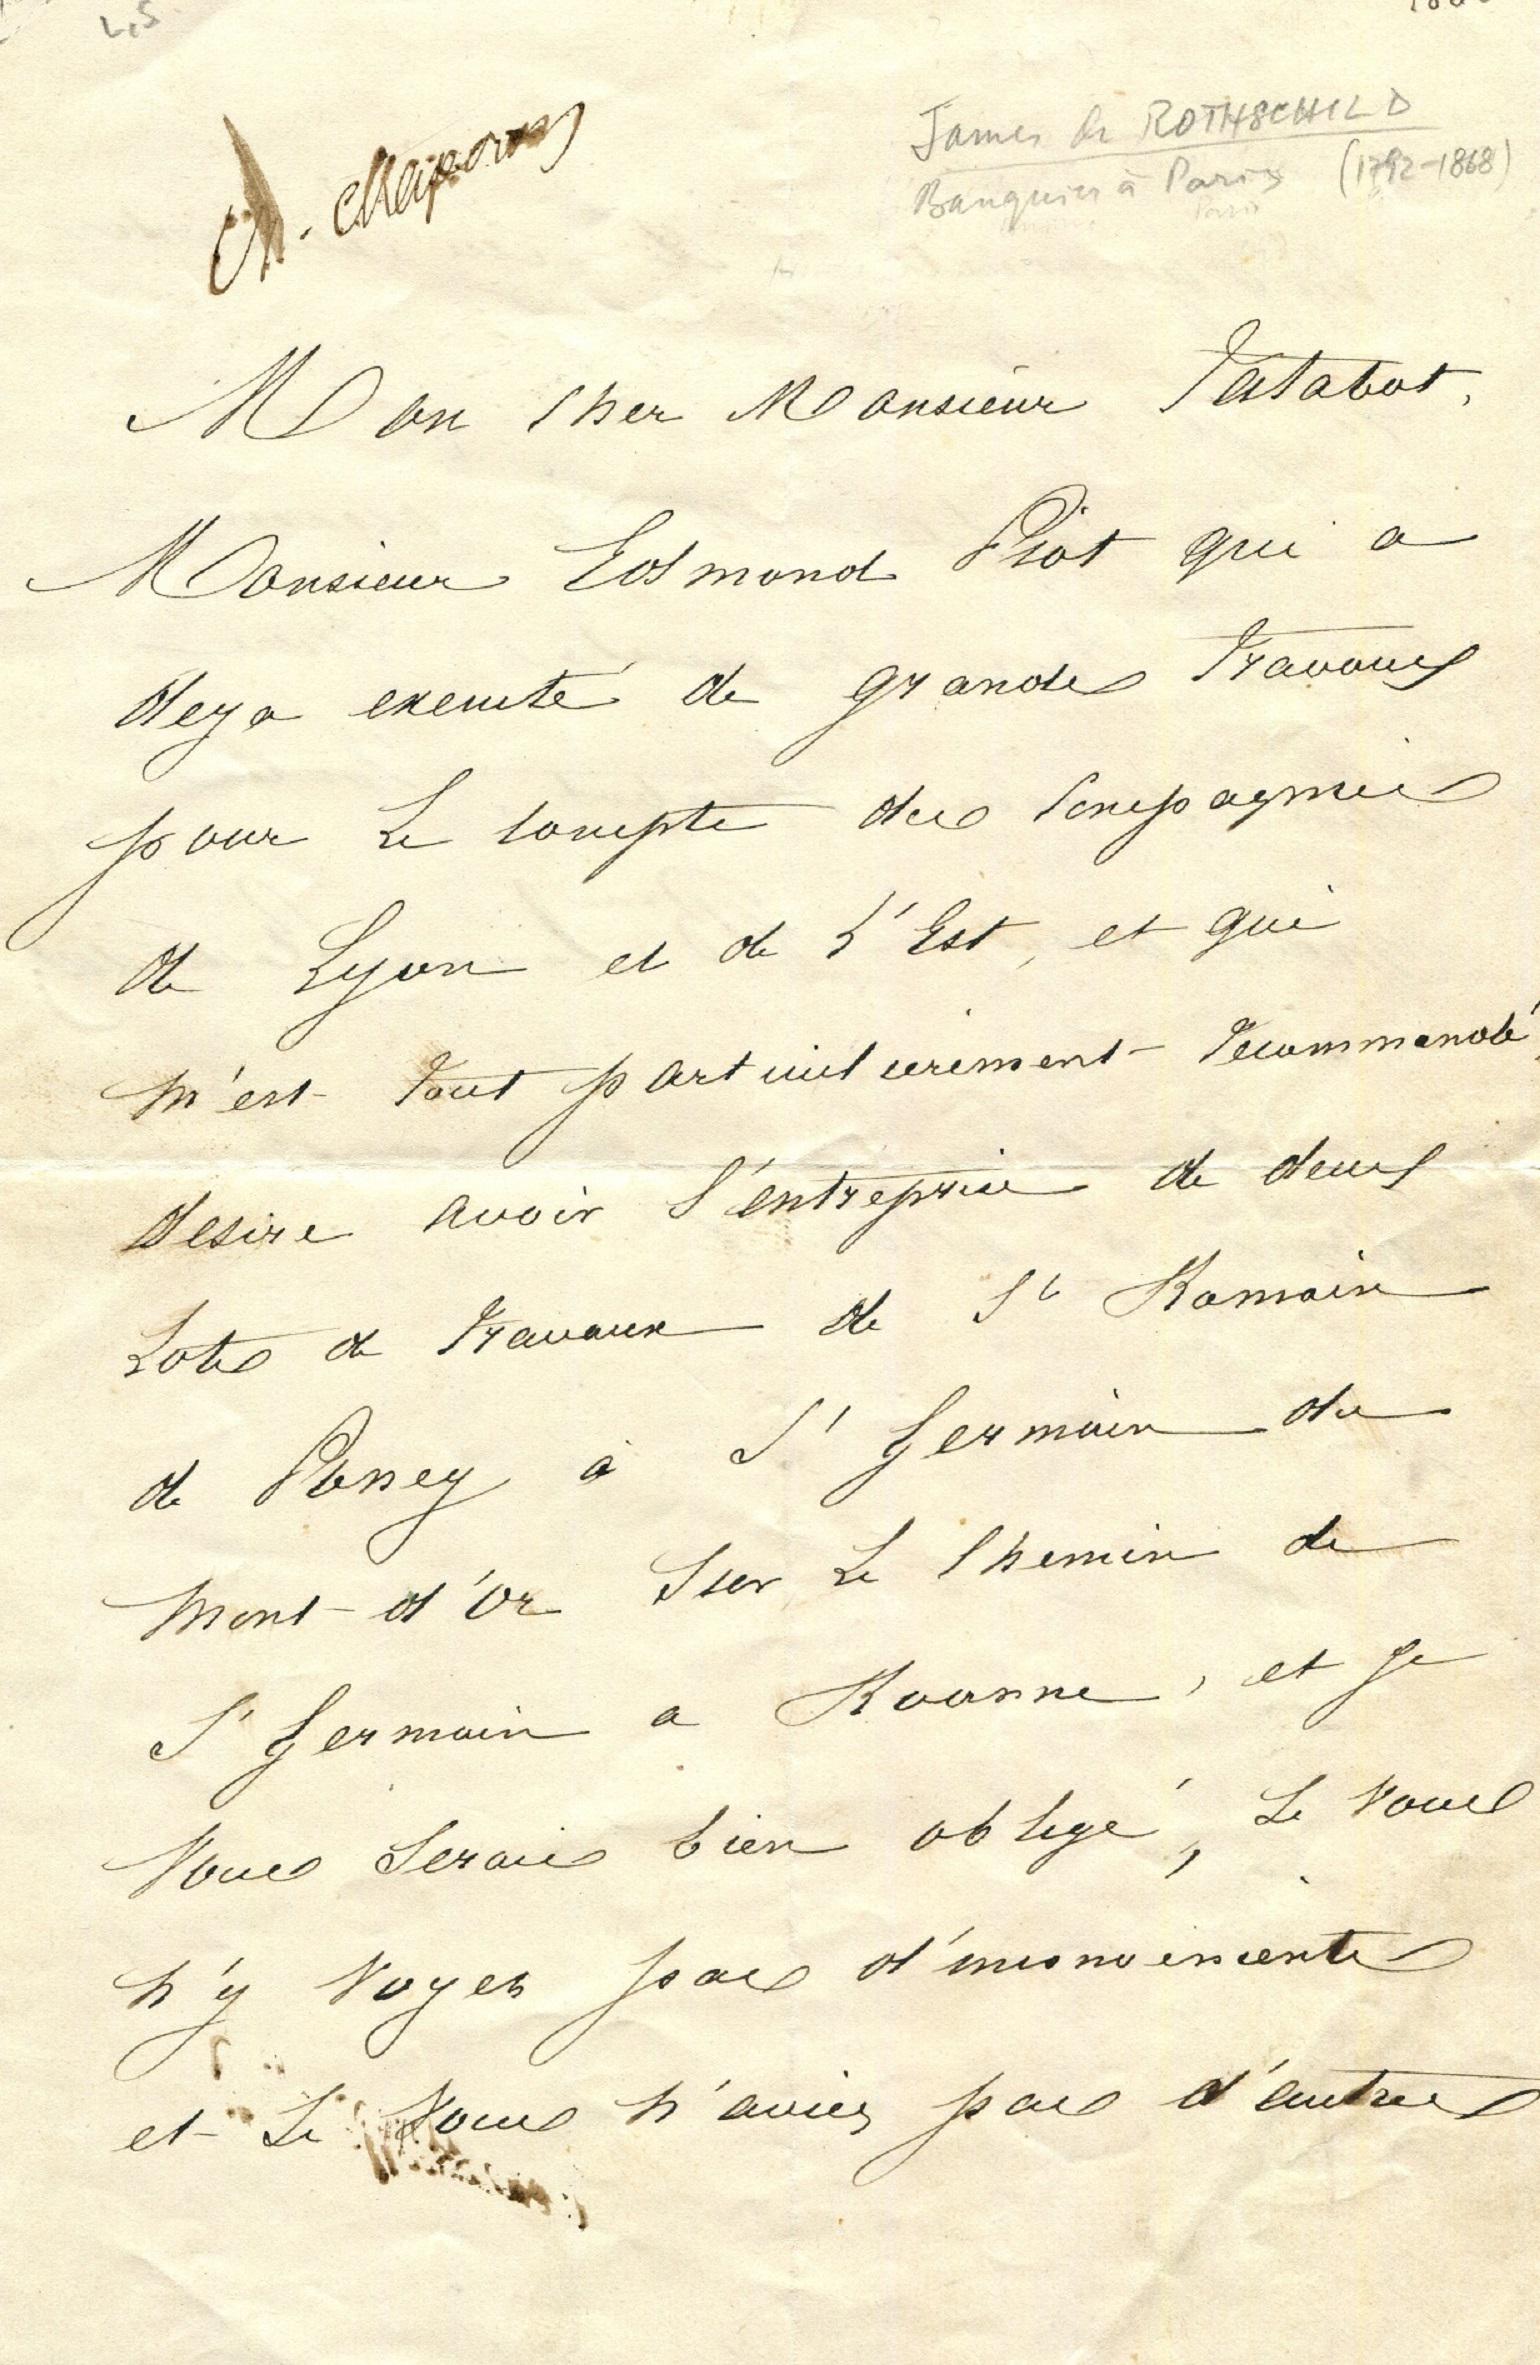 L.S
James de ROTHSCHILD
Banquier à Paris (1792-1868)
Mon cher Monsieur Talabot,
Monsieur Edmond Piot qui a
deja executé de grandes travaux
pour Le compte des compagnies
de Lyon et de L'Est, et qui
m'est tout particulierement recommandé,
desire avoir l'entreprise de deux
Lots de travaux de St Romain
de Popey à St Germain du
Mont-d'Or sur Le chemin de
St Germain a Roanne, et je
vous serais bien obligé, Si vous
n'y voyez pas d'inconvenients
et Si vous n'aviez pas d'autres